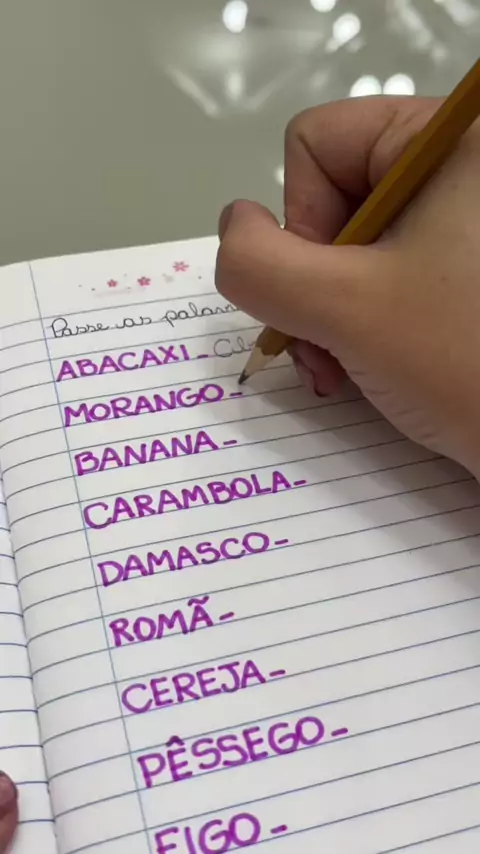 Passe as
ABACAXI -
MORANGO -
BANANA -
CARAMBOLA -
DAMASCO -
ROMÃ -
CEREJA -
PÊSSEGO -
FIGO -